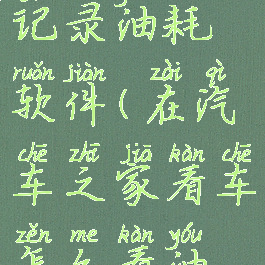 记录油耗
ruǎn jiàn zài qì
软件(在汽
chē zhī jiā kàn chē
车之家看车
zěn me kàn yóu
怎么看油